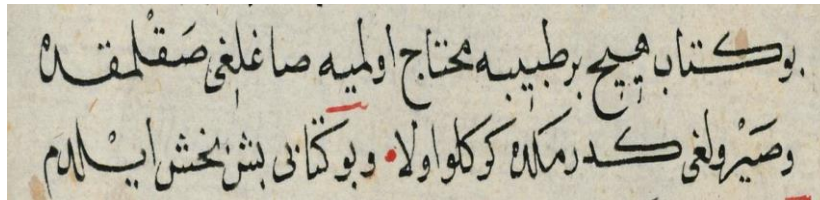 بو كتاب هیچ بر طبیبه محتاج اولمیه صاغلغی صقلمقده
و صیرولغی كدرمكده كركلو اولا • و بو كتابی بش بخش ایلدم